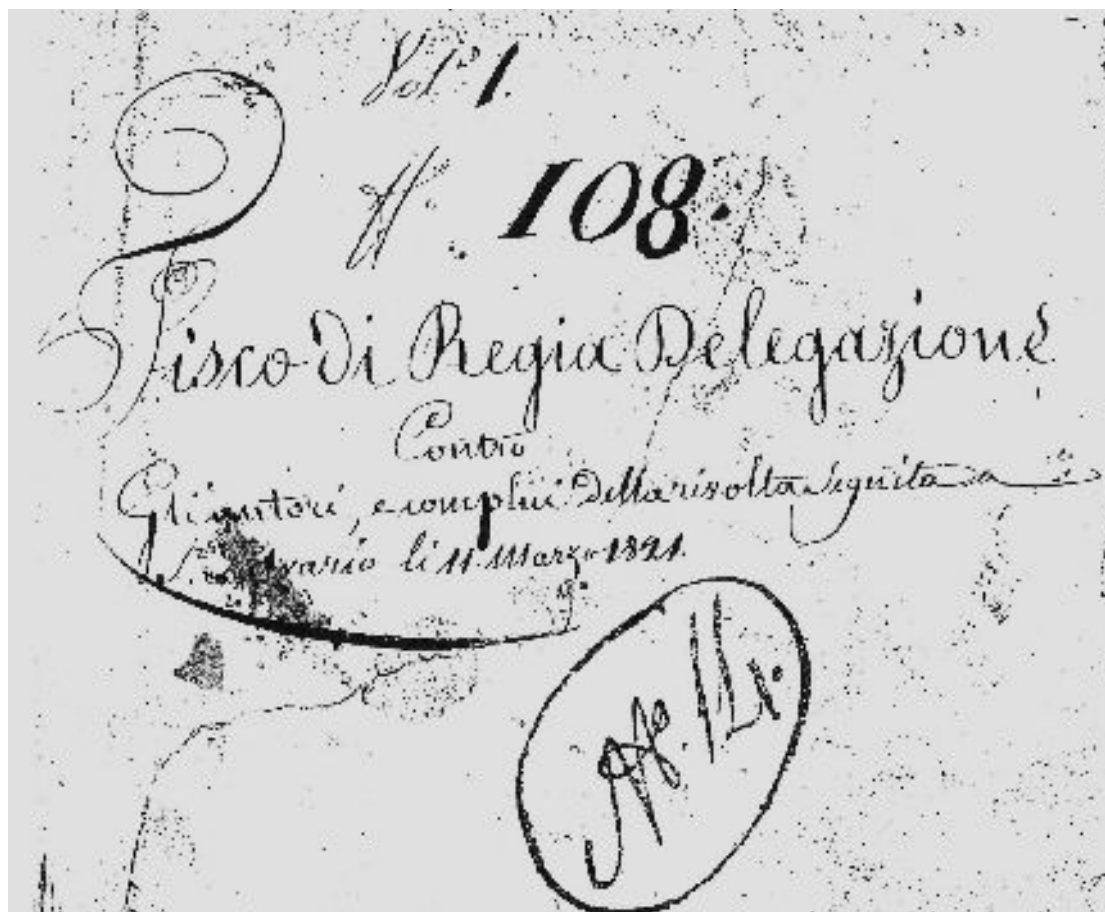 Vol.º 1.
N.º 108.
Fisco di Regia Delegazione
Contro
Gli autori, e complici della rivolta seguita a
li 11. Marzo 1821.